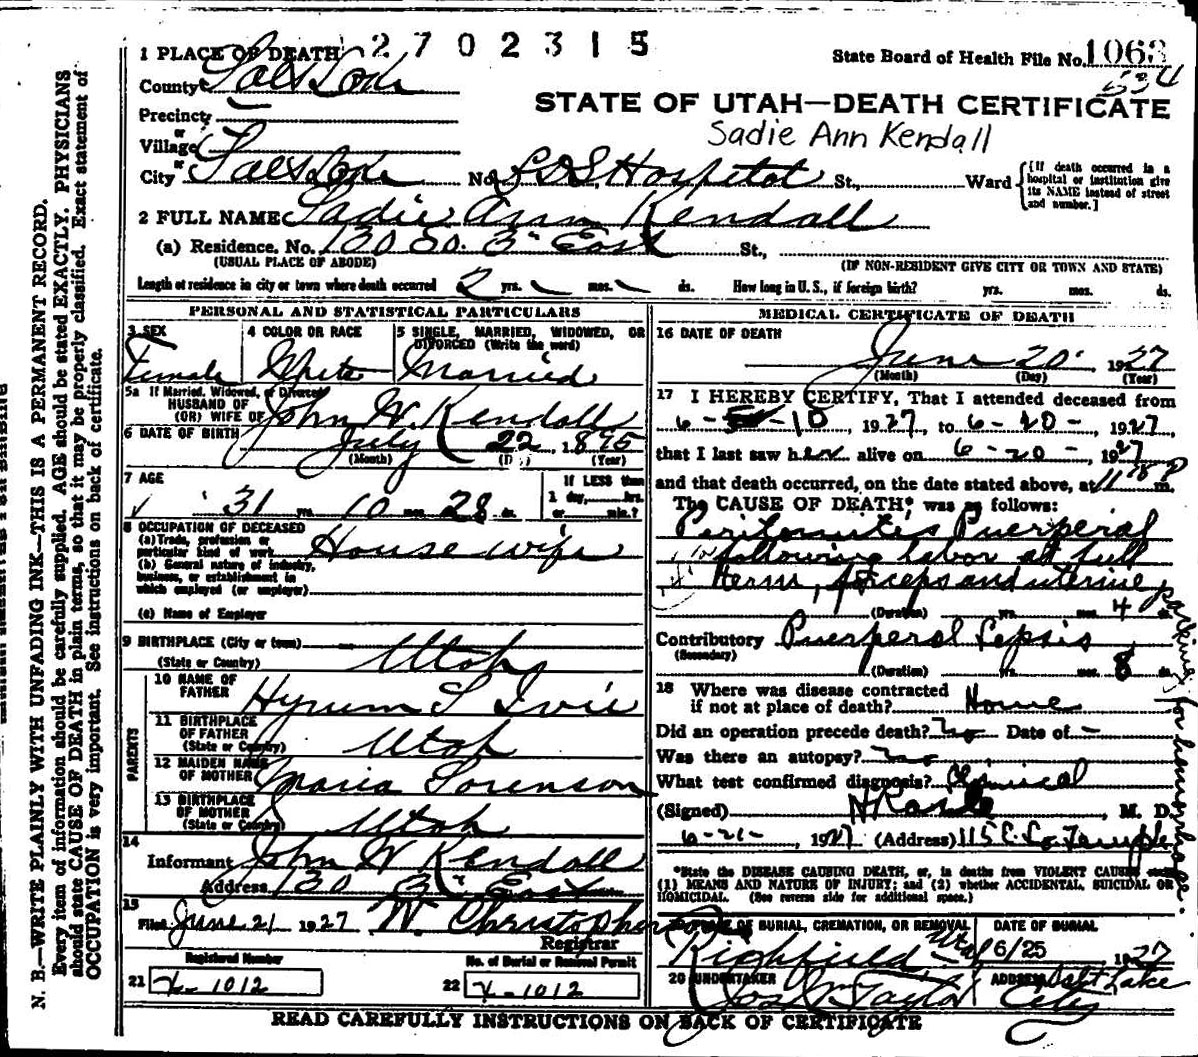 2702315
State Board of Health File No. 1063
534
1 PLACE OF DEATH
County Salt Lake
STATE OF UTAH—DEATH CERTIFICATE
Precinct
or
Sadie Ann Kendall
Village
or
City Salt Lake No. L D S Hospital St., Ward {[If death occurred in a hospital or institution give its NAME instead of street and number.]
2 FULL NAME Sadie Ann Kendall
(a) Residence. No. 130 So. 3" East St.,
(USUAL PLACE OF ABODE) (IF NON-RESIDENT GIVE CITY OR TOWN AND STATE)
Length of residence in city or town where death occurred 2 yrs. mos. ds. How long in U. S., if foreign birth? yrs. mos. ds.
PERSONAL AND STATISTICAL PARTICULARS
3 SEX
Female
4 COLOR OR RACE
White
5 SINGLE, MARRIED, WIDOWED, OR
DIVORCED (Write the word)
Married
5a If Married, Widowed, or Divorced
HUSBAND OF
(OR) WIFE OF John W. Kendall
6 DATE OF BIRTH July 22 1895
(Month) (Day) (Year)
7 AGE
31 yrs. 10 mos. 28 ds.
If LESS than
1 day, hrs.
or min.?
8 OCCUPATION OF DECEASED
(a) Trade, profession or
particular kind of work Housewife
(b) General nature of industry,
business, or establishment in
which employed (or employer)
(c) Name of Employer
9 BIRTHPLACE (City or town)
(State or Country) Utah
PARENTS
10 NAME OF
FATHER Hyrum S Ivie
11 BIRTHPLACE
OF FATHER
(State or Country) Utah
12 MAIDEN NAME
OF MOTHER Maria Sorenson
13 BIRTHPLACE
OF MOTHER
(State or Country) Utah
14
Informant John W Kendall
Address 130 3" East
15
Filed June 21 1927 W. Christopherson
Registrar
Registered Number
21 X-1012
No. of Burial or Removal Permit
22 X-1012
MEDICAL CERTIFICATE OF DEATH
16 DATE OF DEATH
June 20 1927
(Month) (Day) (Year)
17 I HEREBY CERTIFY, That I attended deceased from
6-10, 1927, to 6-20-, 1927,
that I last saw her alive on 6-20-, 1927
and that death occurred, on the date stated above, at 11 P m.
The CAUSE OF DEATH* was as follows:
Peritonitis Puerperal
following labor at full
term, forceps and uterine
packing for hemorrhage.
(Duration) yrs. mos. 4 ds.
Contributory Puerperal Sepsis
(Secondary)
(Duration) yrs. mos. 8 ds.
18 Where was disease contracted
if not at place of death? Home
Did an operation precede death? no Date of -
Was there an autopsy? no
What test confirmed diagnosis? Clinical
(Signed) M. D.
6-21-1927 (Address) 115 E. So Temple
*State the DISEASE CAUSING DEATH, or, in deaths from VIOLENT CAUSES state
(1) MEANS AND NATURE OF INJURY; and (2) whether ACCIDENTAL, SUICIDAL OR
HOMICIDAL. (See reverse side for additional space.)
OF BURIAL, CREMATION, OR REMOVAL
Richfield Utah
DATE OF BURIAL
6/25 1927
20 UNDERTAKER
Jos. W Taylor
ADDRESS Salt Lake
City
READ CAREFULLY INSTRUCTIONS ON BACK OF CERTIFICATE
N. B.—WRITE PLAINLY WITH UNFADING INK—THIS IS A PERMANENT RECORD.
Every item of information should be carefully supplied. AGE should be stated EXACTLY. PHYSICIANS
should state CAUSE OF DEATH in plain terms, so that it may be properly classified. Exact statement of
OCCUPATION is very important. See instructions on back of certificate.